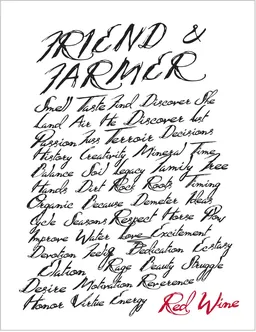 FRIEND &
FARMER
Smell Taste Find Discover She
Land Air He Discover List
Passion Fuss Terroir Decisions
History Creativity Mineral Time
Balance Soil Legacy Family Tree
Hands Dirt Rock Roots Timing
Organic Because Demeter Ideas
Cycle Seasons Respect Horse Plow
Improve Water Love Excitement
Devotion Feeling Dedication Ecstasy
Elation Rage Beauty Struggle
Desire Motivation Reverence
Honor Virtue Energy Red Wine